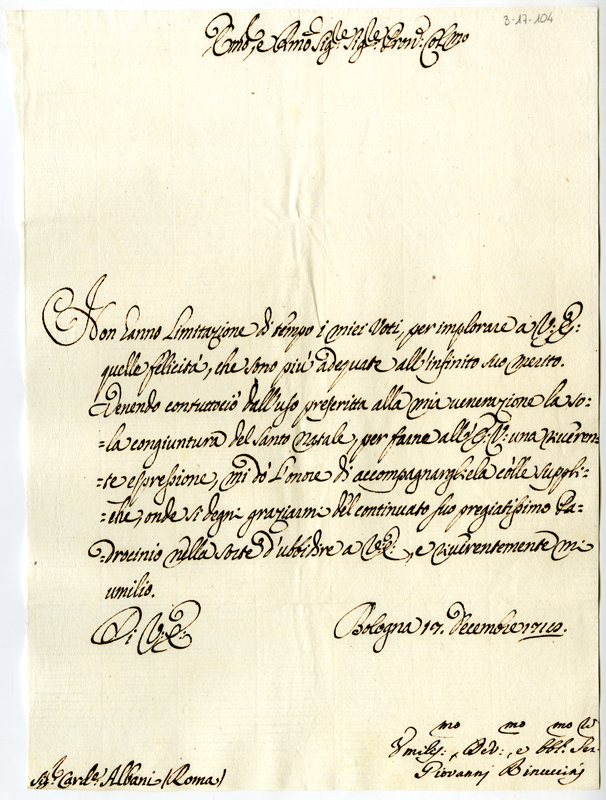 3-17-104
Emo, e Rmo Sig.re Sig.re Pron: Colmo
Non hanno Limitazione di tempo i miei Voti, per implorare a V: E:
quelle felicità, che sono più adequate all'infinito suo merito.
Devendo contuttociò dall'uso preseritta alla mia venerazione la so:
=la congiuntura del Santo Natale, per farne all' E: V: una riveren=
=te espressione, mi dò l'onore di accompagnarghela colle suppli=
=che, onde si degni graziarmi del continuato suo pregiatissimo Pa=
=drocinio nella sorte d'ubbidire a V: E:, e riverentemente mi
umilio.
Di V: E:
Bologna 17. Decembre
Umiliss:mo, Dev:mo, e obbl:mo Ser:
Giovannj Binuccinj
Sig.r Card.le Albani (Roma)